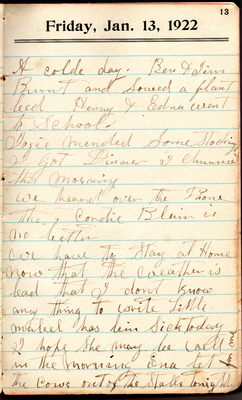 13
Friday, Jan. 13, 1922
A colde day. Ben & Jim
Burnt and Sowed a plant
bed Henry & Edna went
to School.
Osie mended Some Stockings
I Got Dinner I Churned
this morning
we heared over the Phone
that Condie Blain is
no better
we have to Stay at Home
now that the weather is
bad that I dont know
any thing to write little
mabel has bein Sick today
I hope She may be well
in the morning Ena let
the cows out of the Stable tonight